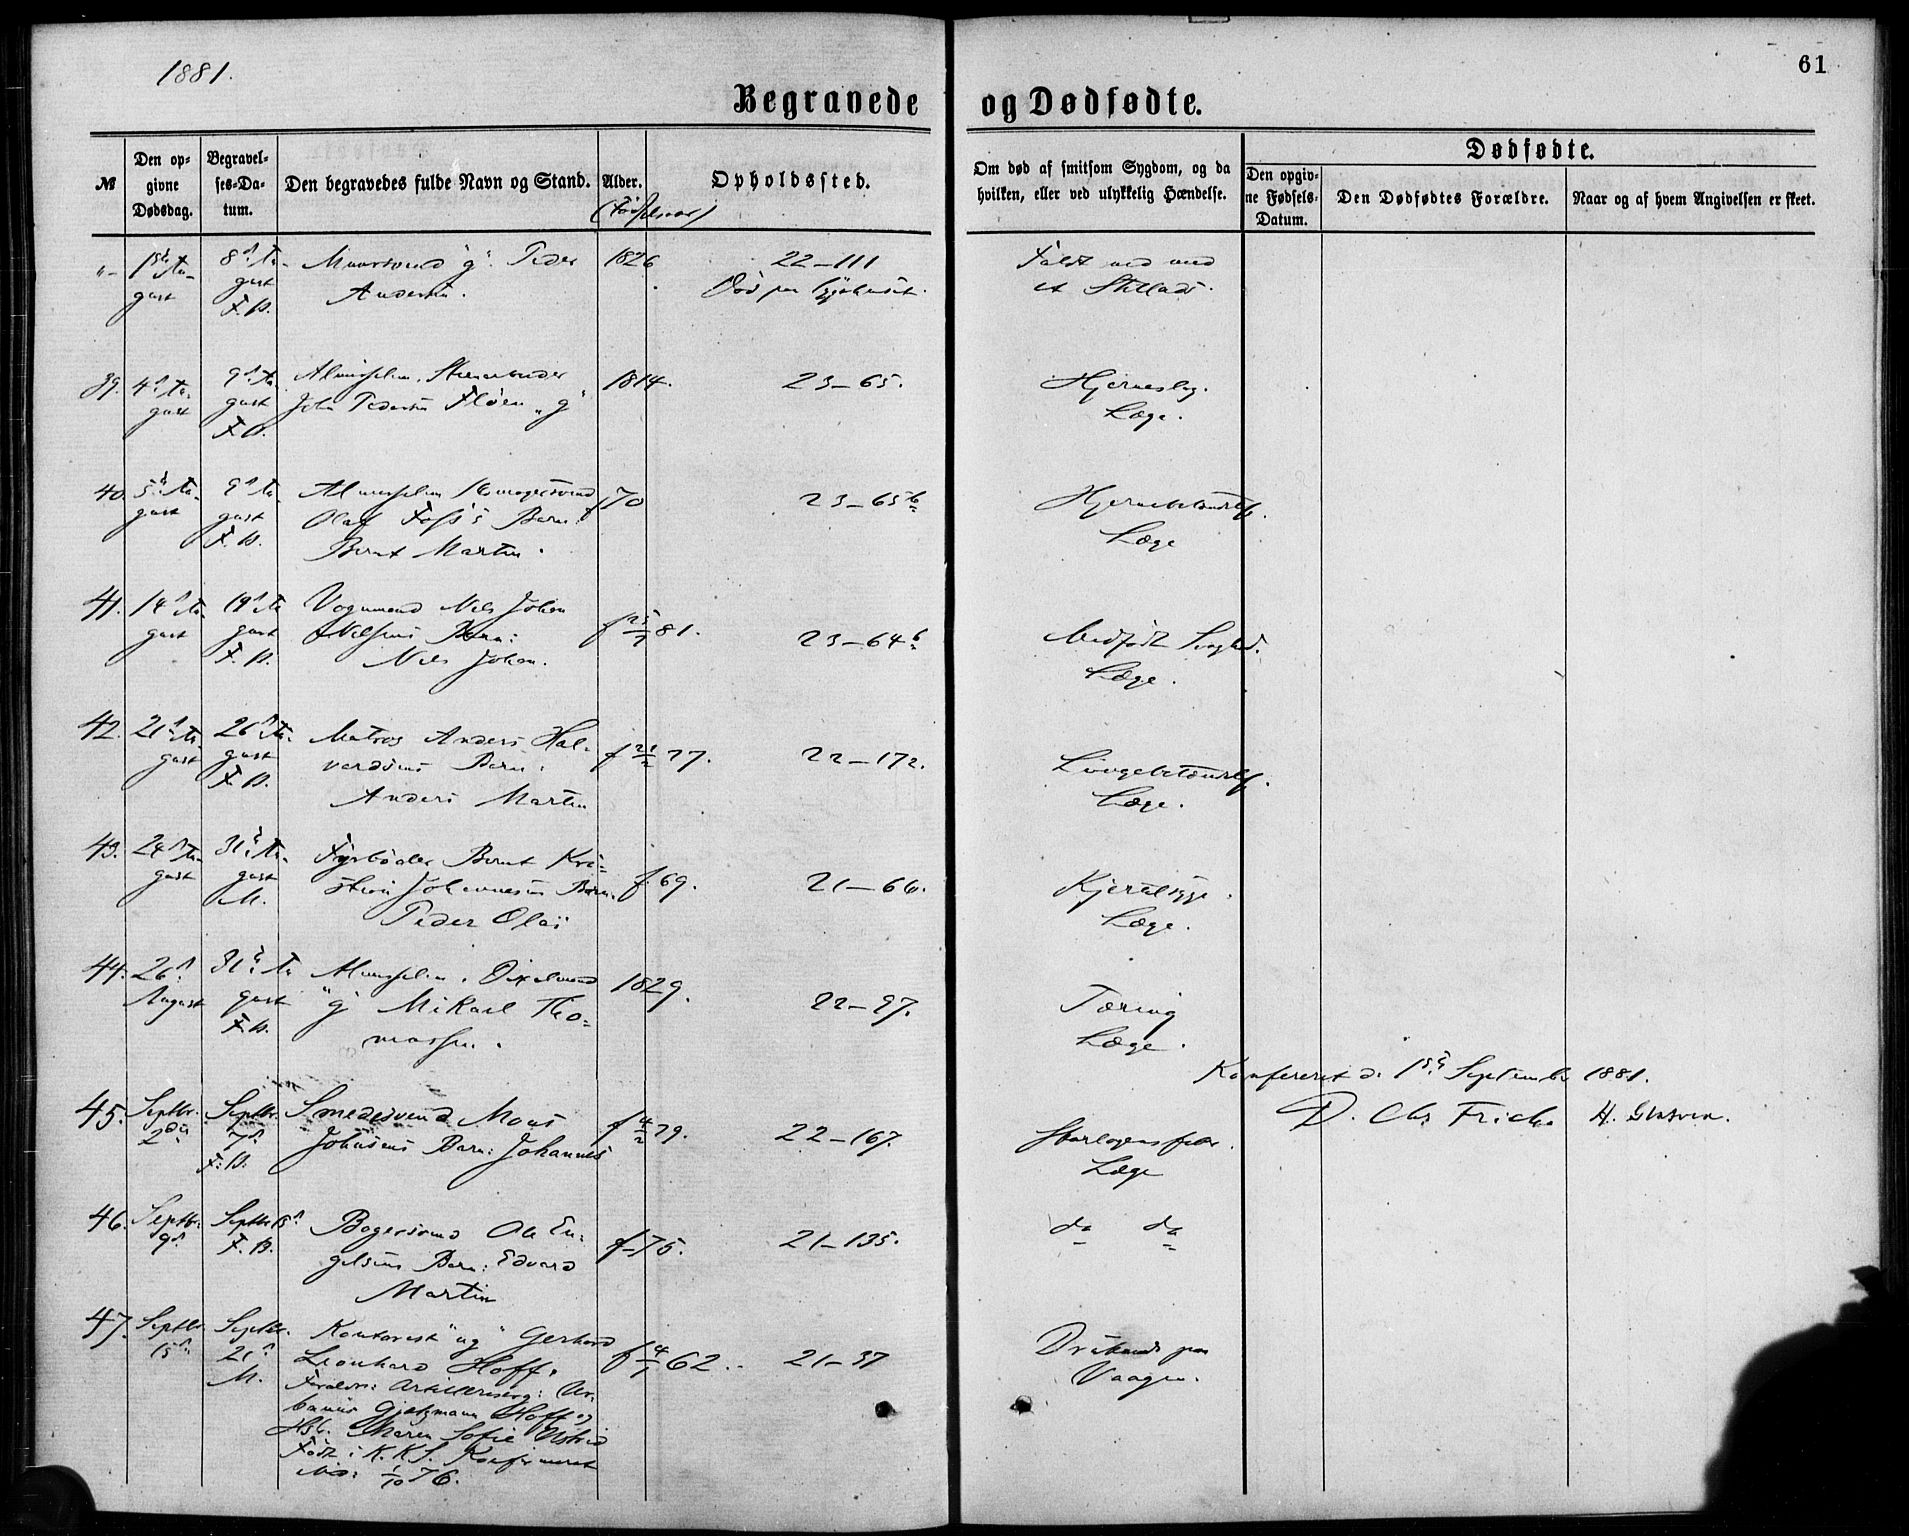 1881.
61
Begravede og Dødfødte.
№
Den opgivne Dødsdag.
Begravelses-Datum.
Den begravedes fulde Navn og Stand.
Alder.
(Fødselsaar)
Opholdssted.
Om død af smitsom Sygdom, og da
hvilken, eller ved ulykkelig Hændelse.
Dødfødte.
Den opgivne Fødsels-Datum.
Den Dødfødtes Forældre.
Naar og af hvem Angivelsen er skeet.
"- 1ste August 8de August Muursvend "g". Peder 1826 22-111 Faldt ned med
F.B. Andersen. Død paa Sygehuset. et Stillads.
39. 4de August 9de August Almisselem, 1814. 23-65. Hjerneslag.
F.B. John Pedersen Fløen "g" Læge.
40. 5te August 9de August Almisselem 70 23-65b Hjernebetændelse.
Olaf Foss's Barn:
F.B. Bernt Martin. Læge
41. 14de August 19de August Vognmand Nils Johan f 25/7 81. 23-64b Medfødt Svaghed.
Nilsens Barn:
F.B. Nils Johan. Læge.
42. 21de August 26de August Matros Anders Hal- f 77. 22-172. Lungebetændelse.
vardsens Barn:
F.B. Anders Martin Læge.
43. 24de August 31te August Fyrbøder Bernt Kri- f. 69. 21-66. Kjertelsyge.
stian Johannesens Barn.
M. Peder Olai Læge.
44. 26de August 31te August Almisselem, 1829. 22-97. Tæring
"g" Mikael Tho-
F.B. massen. Læge.
Konfereret d. 1ste September 1881.
D. Chr Friele H.
45. Septbr. 2den Septbr. 7de Smedesvend Mons f 4/2 79. 22-167. Skarlagensfeber.
F.B. Johnsens Barn: Johannes Læge
46. Septbr. 9de Septbr. F.B. Bagersvend Ole En- f. 75. 21-135. do do
gelsens Barn: Edvard
Martin
47. Septbr. 15de Septbr. 21de Kontorist "ug" Gerhard f 62. 21-37 Druknede paa
M. Leonhard Hoff. Vaagen.
Forældre: Ur-
banus Gjetzmann Hoff og
Hst. Maren Sofie
Født i K.K.S. Konfirmeret
1/10 76.